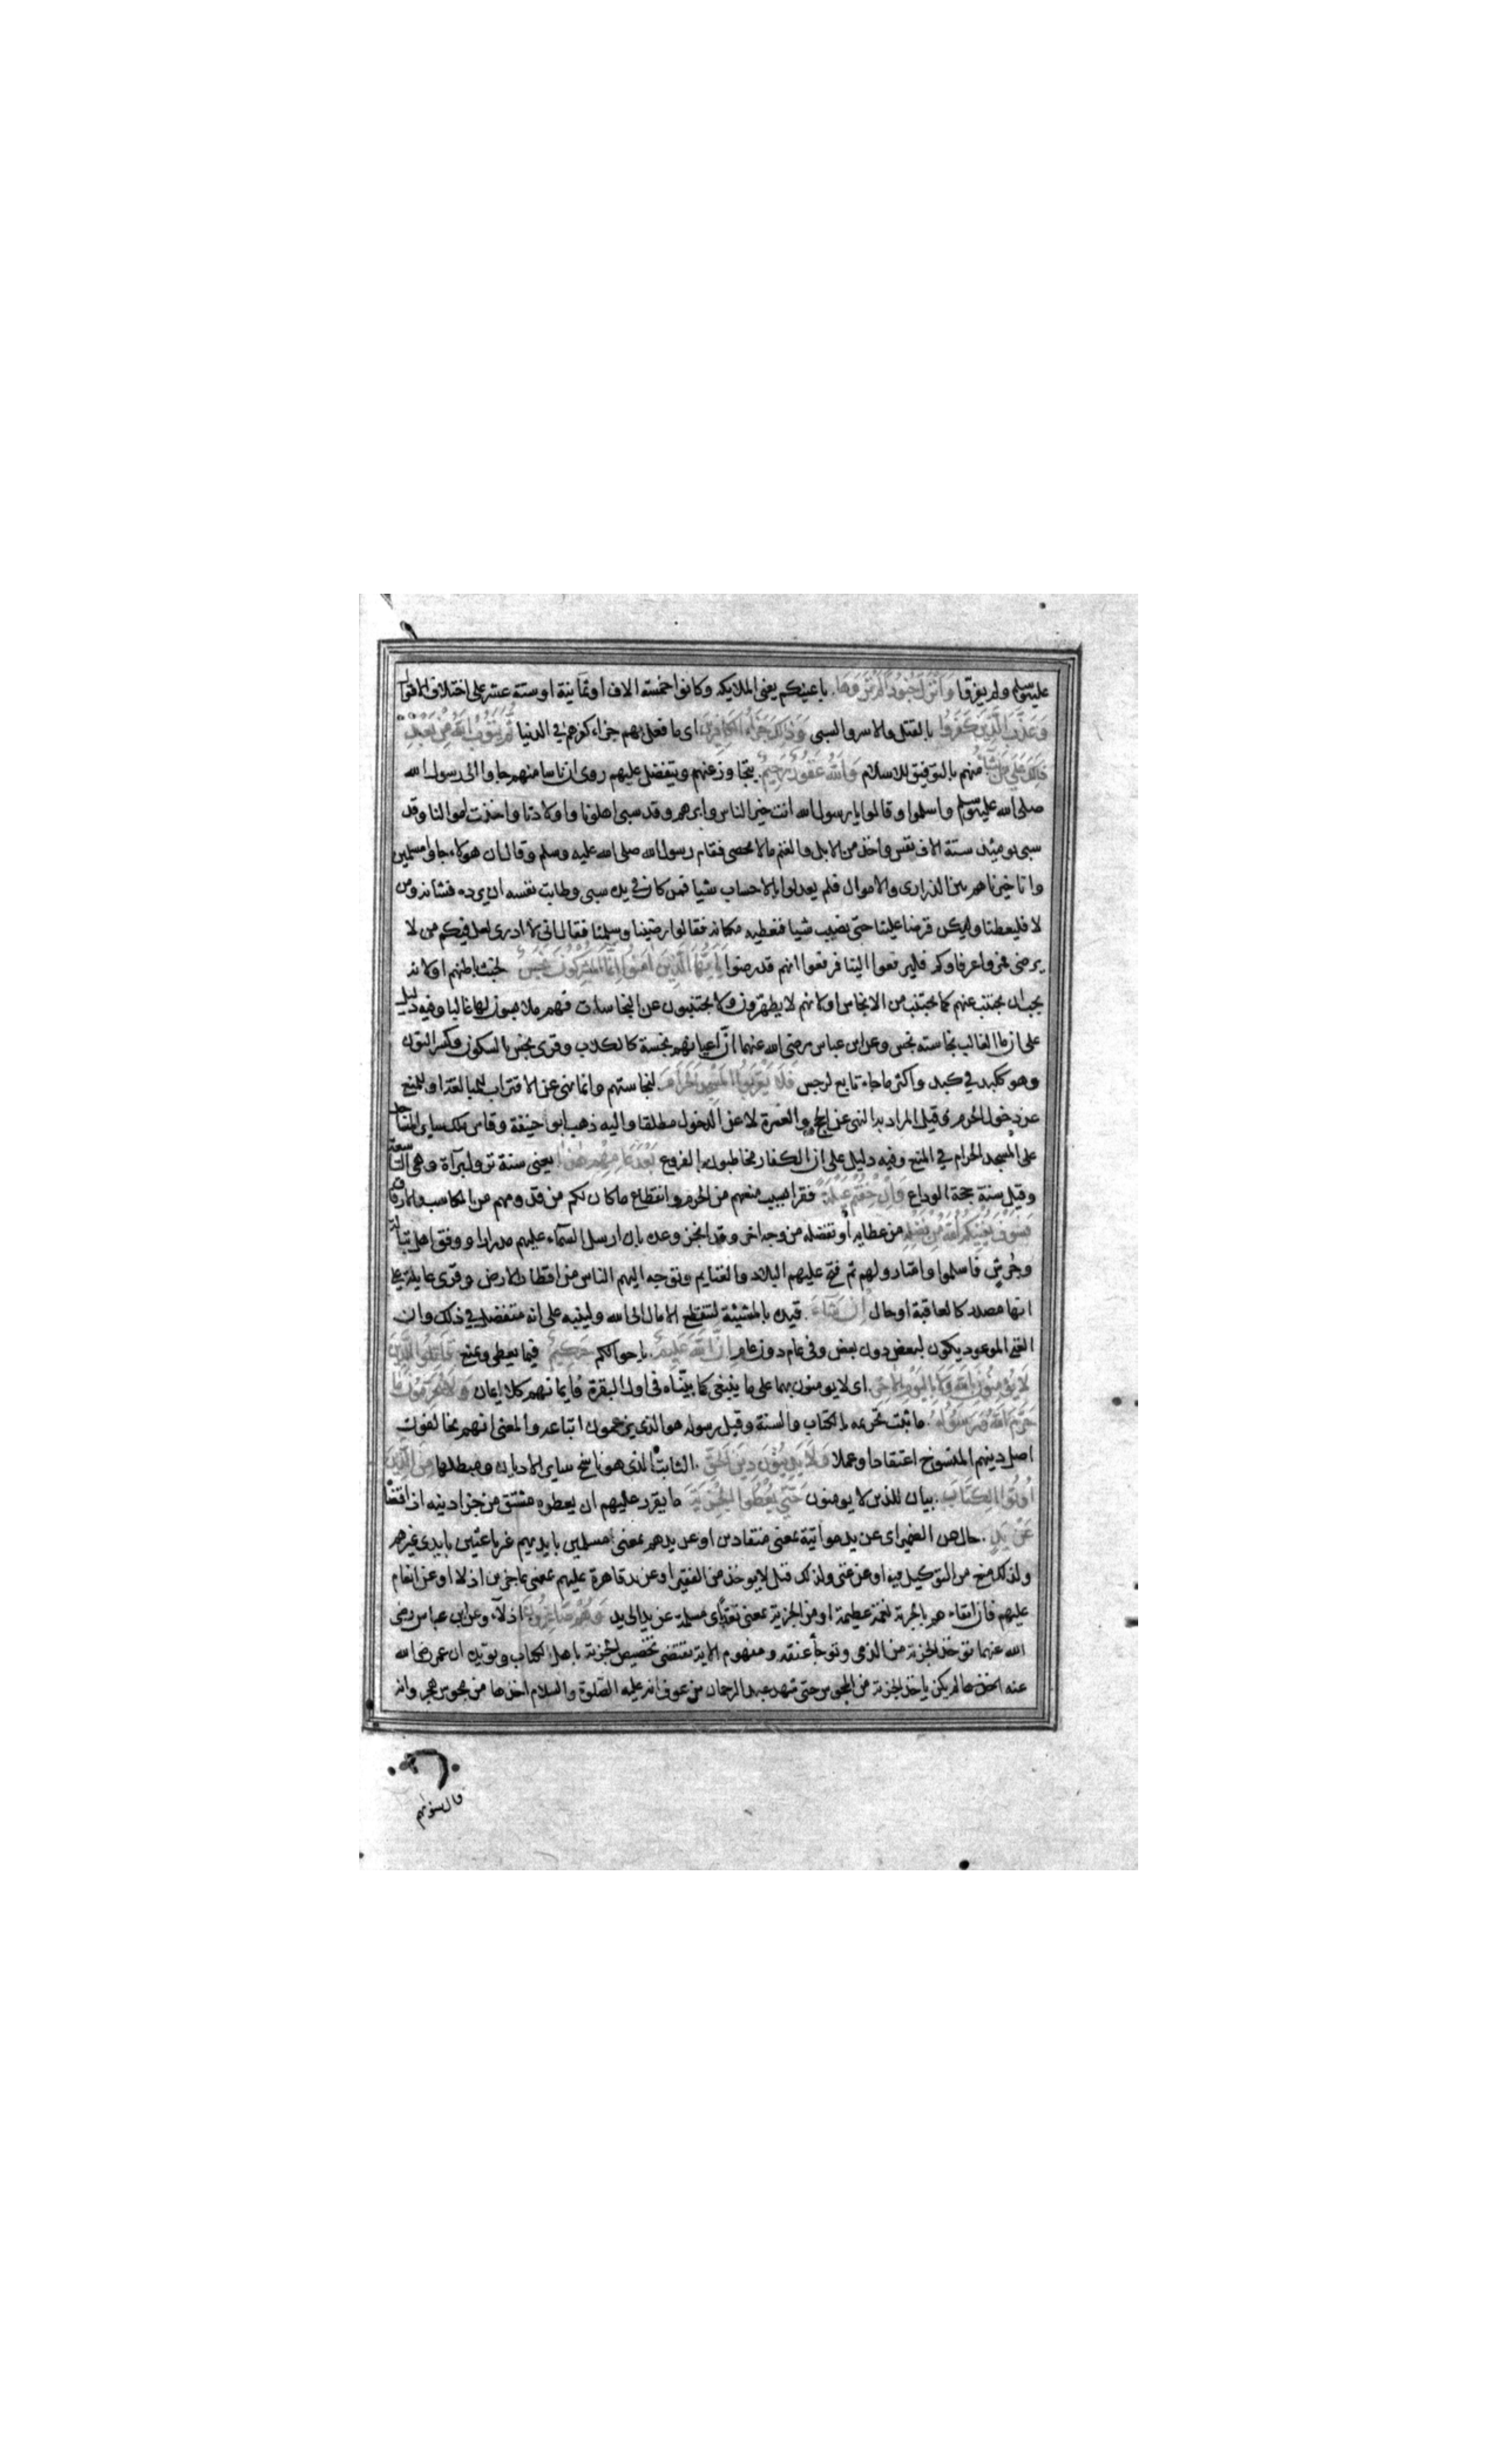 عليه وسلم ولم يفرقا وَاَنْزَلَ جُنُودًا لَمْ تَرَوْهَا باعينكم يعني الملايكه وكانوا خمسة الاف او ثمانية او ستة عشر على اختلاف الاقوال
وَعَذَّبَ الَّذِينَ كَفَرُوا بالقتل والاسر والسبي وَذٰلِكَ جَزَاءُ الكَافِرِينَ اى ما فعل بهم جزاء كفرهم في الدنيا ثُمَّ يَتُوبُ اللهُ مِنْ بَعْدِ
ذٰلِكَ عَلٰي مَنْ يَشَاءُ منهم بالتوفيق للاسلام وَاللهُ غَفُورٌ رَحِيمٌ يتجاوز عنهم ويتفضل عليهم روى ان ناسا منهم جاوا الى رسول الله
صلى الله عليه وسلم واسلموا وقالوا يا رسول الله انت خير الناس وابرهم وقد سبى اهلونا واولادنا واخذت اموالنا وقد
سبى يوميذ ستة الاف نفس واخذ من الابل والغنم ما لا يحصى فقام رسول الله صلى الله عليه وسلم وقال ان هولاء جاوا مسلمين
وانا خيرناهم بين الذرارى والاموال فلم يعدلوا بالاحساب شيا فمن كان في يده سبى وطابت نفسه ان يرده فشانه ومن
لا فليعطنا وليكن قرضا علينا حتى نصيب شيا فنعطيه مكانه فقالوا رضينا وسلمنا فقال انى لا ادرى لعل فيكم من لا
يرضى فمروا عرفاوكم فليرفعوا الينا فرفعوا انهم قد رضوا يَا اَيُّهَا الَّذِينَ اٰمَنُوا اِنَّمَا المُشْرِكُونَ نَجَسٌ لخبث باطنهم او لانه
يجب ان يجتنب عنهم كما يجتنب من الانجاس او لانهم لا يطهرون ولا يجتنبون عن النجاسات فهم ملابسون لها غالبا وفيه دليل
على ان ما الغالب نجاسته نجس وعن ابن عباس رضى الله عنهما ان اعيانهم نجسة كالكلاب وقرى نجس بالسكون وكسر النون
وهو ككبد في كبد واكثر ما جاء تابع لرجس فَلَا يَقْرَبُوا المَسْجِدَ الحَرَامَ لنجاستهم وانما نهى عن الاقتراب للمبالغة او للمنع
عن دخول الحرم وقيل المراد به النهى عن الحج والعمرة لا عن الدخول مطلقا واليه ذهب ابو حنيفة وقاس ملك ساير المساجد
على المسجد الحرام في المنع وفيه دليل على ان الكفار مخاطبون بالفروع بَعْدَ عَامِهِمْ هٰذَا يعنى سنة نزول براة وهى التاسعة
وقيل سنة حجة الوداع وَاِنْ خِفْتُمْ عَيْلَةً فقرا بسبب منعهم من الحرم وانقطاع ما كان لكم من قدومهم من المكاسب والارفاق
فَسَوْفَ يُغْنِيكُمُ اللهُ مِنْ فَضْلِهِ من عطايه او تفضله من وجه اخر وقد انجز وعده بان ارسل السماء عليهم مدرارا ووفق اهل تبالة
وجرش فاسلموا وامتاروا لهم ثم فتح عليهم البلاد والغنايم وتوجه اليهم الناس من اقطار الارض وقرى عايلة على
انها مصدر كالعاقبة او حال اِنْ شَاءَ قيده بالمشيئة لتنقطع الامال الى الله ولينبه على انه متفضل في ذلك وان
الغنى الموعود يكون لبعض دون بعض وفى عام دون عام اِنَّ اللهَ عَلِيمٌ باحوالكم حَكِيمٌ فيما يعطى ويمنع قَاتِلُوا الَّذِينَ
لَا يُؤْمِنُونَ بِاللهِ وَلَا بِاليَوْمِ الاٰخِرِ اى لا يومنون بهما على ما ينبغى كما بيناه فى اول البقرة فايمانهم كلا ايمان وَلَا يُحَرِّمُونَ مَا
حَرَّمَ اللهُ وَرَسُولُهُ ما ثبت تحريمه بالكتاب والسنة وقيل رسوله هو الذى يزعمون اتباعه والمعنى انهم يخالفون
اصل دينهم المنسوخ اعتقادا وعملا وَلَا يَدِينُونَ دِينَ الحَقِّ الثابت الذى هو ناسخ ساير الاديان ومبطلها مِنَ الَّذِينَ
اُوتُوا الكِتَابَ بيان للذين لا يومنون حَتّٰي يُعْطُوا الجِزْيَةَ ما يقرر عليهم ان يعطوه مشتق من جزا دينه اذا قضا
عَنْ يَدٍ حال من الضمير اى عن يد مواتية بمعنى منقادين او عن يدهم بمعنى مسلمين بايديهم غير باعثين بايدى غيرهم
ولذلك منع من التوكيل فيه او عن غنى ولذلك قيل لا يوخذ من الفقير او عن يد قاهرة عليهم بمعنى عاجزين اذلا او عن انعام
عليهم فان ابقاءهم بالجزية نعمة عظيمة او من الجزية بمعنى نقدا اى مسلمة عن يد الى يد وَهُمْ صَاغِرُونَ اذلاء وعن ابن عباس رضى
الله عنهما توخذ الجزية من الذمى وتوجأ عنقه ومفهوم الاية يقتضى تخصيص الجزية باهل الكتاب ويويده ان عمر رضى الله
عنه لم يكن ياخذ الجزية من المجوس حتى شهد عبد الرحمان بن عوف انه عليه الصلوة والسلام اخذها من مجوس هجر وانه
قال سنوا بهم